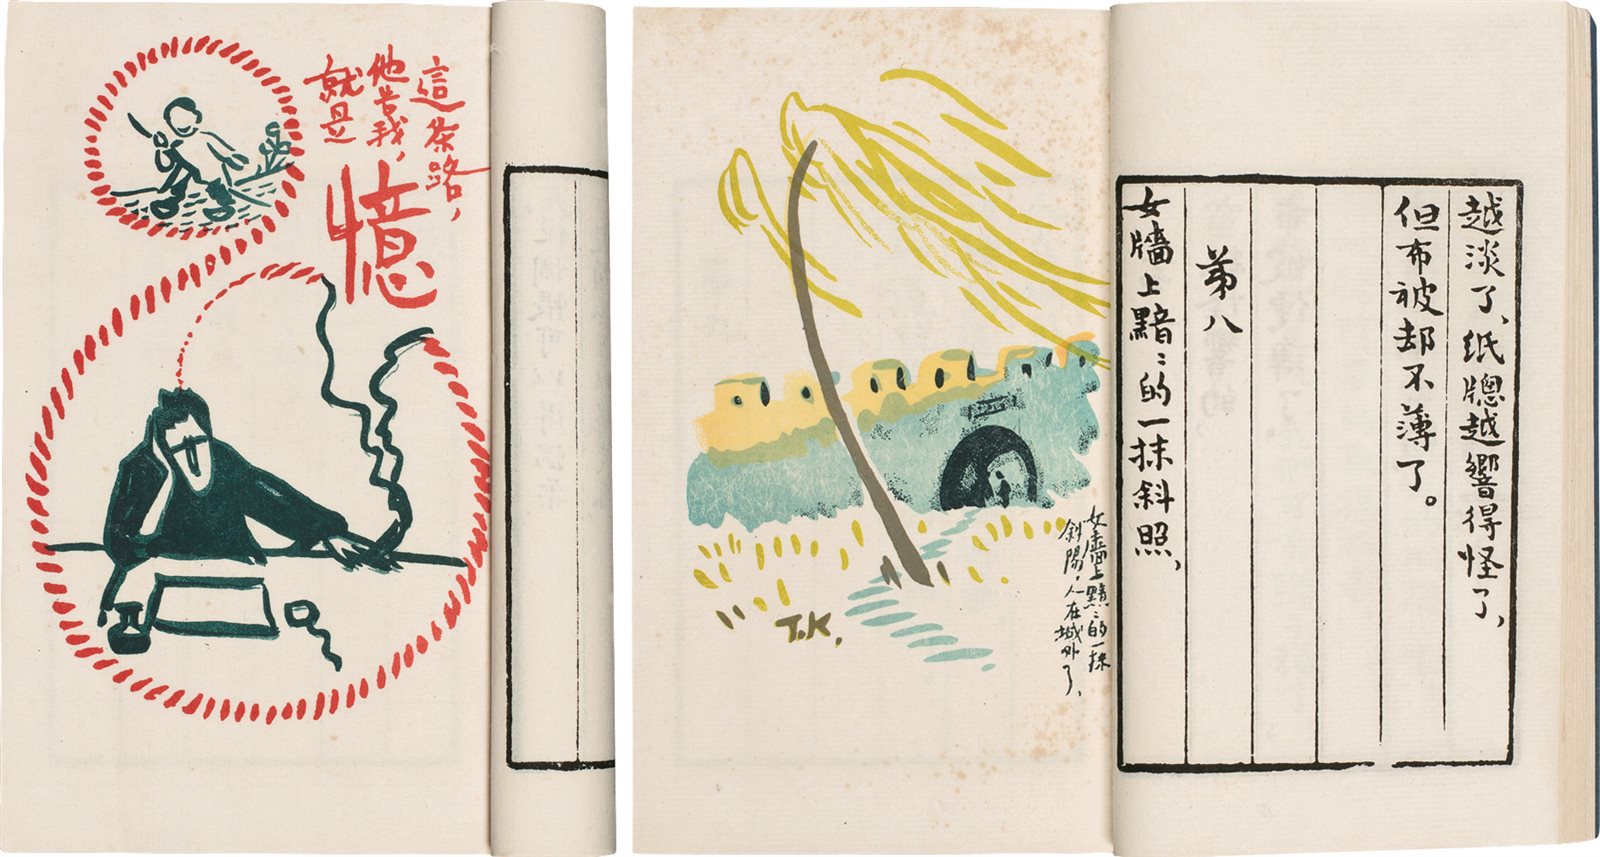 這条路,
他告我,
就是
憶
越淡了、纸牕越響得怪了、
但布被却不薄了。
第八
女牆上黯〻的一抹斜照、
女墙上黯〻的一抹
斜陽,人在城外了、
T.K.